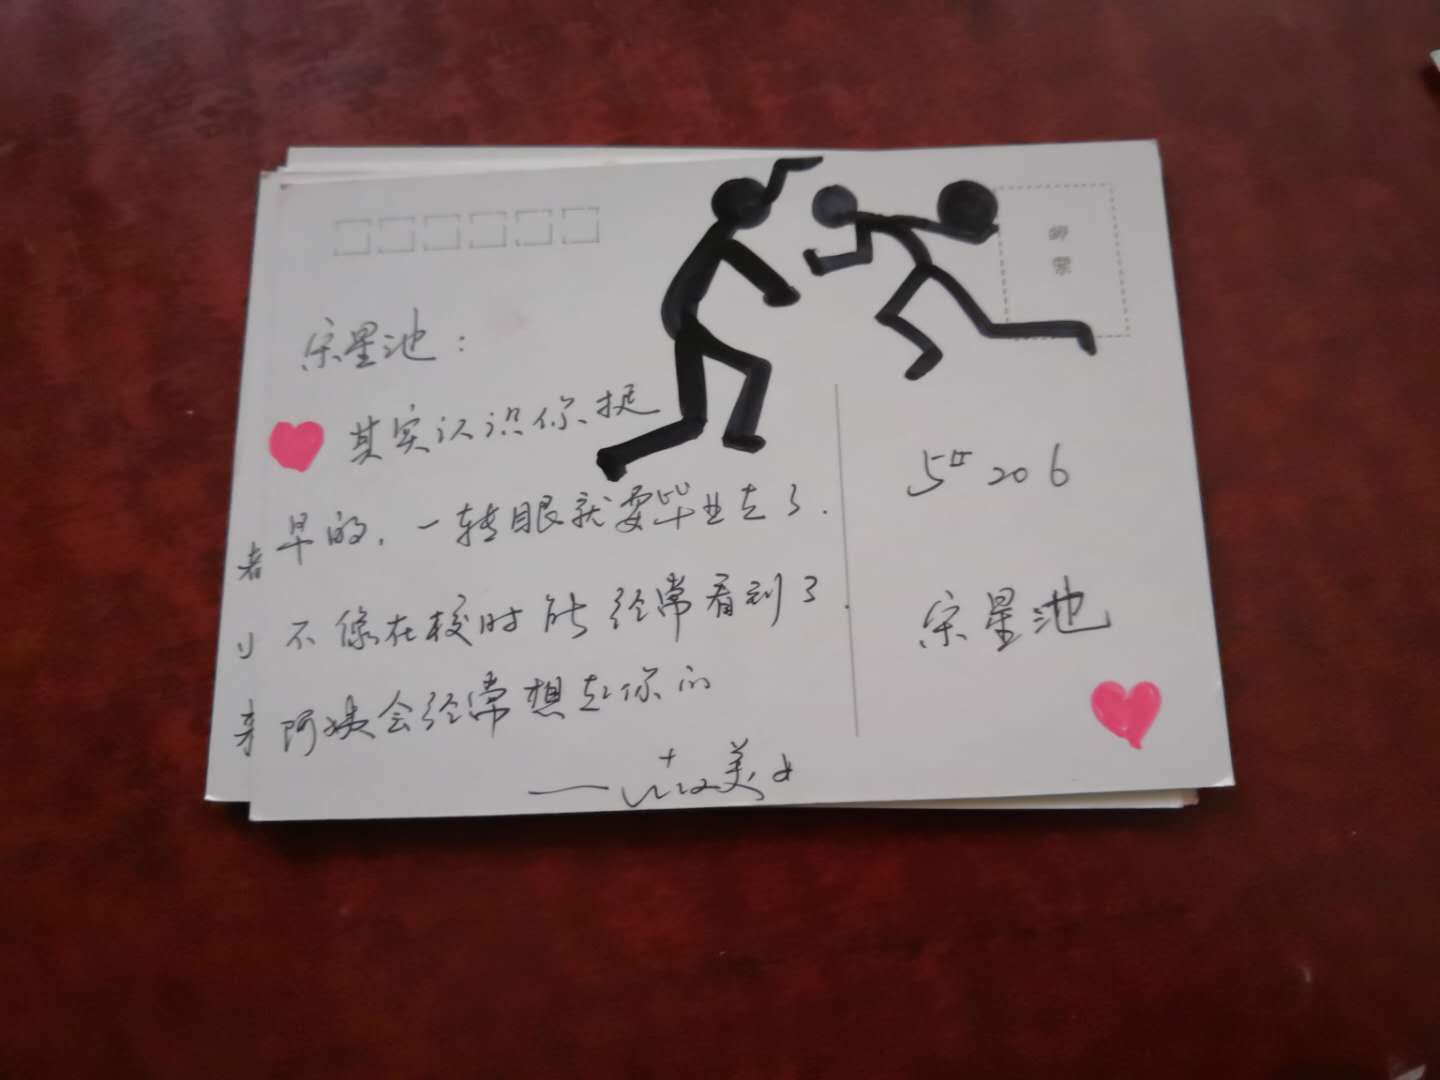 邮票
宋星池：
其实认识你挺
早的，一转眼就要毕业走了．
不像在校时能经常看到了．
阿姨会经常想起你的
美女
5#206
宋星池